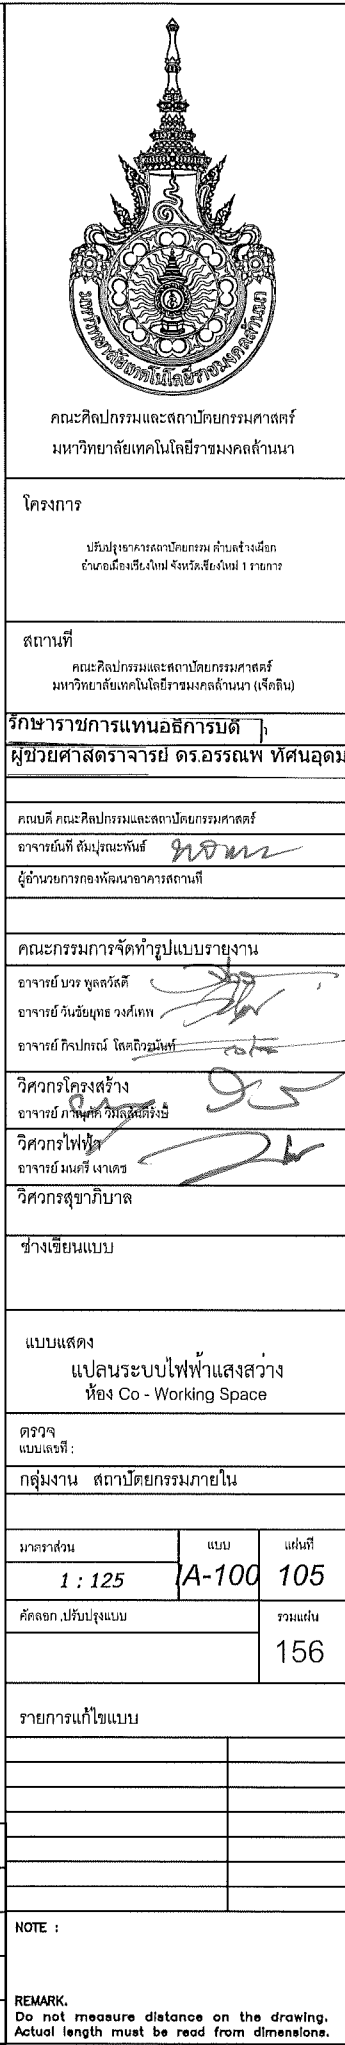 มหาวิทยาลัยเทคโนโลยีราชมงคลล้านนา
คณะศิลปกรรมและสถาปัตยกรรมศาสตร์
มหาวิทยาลัยเทคโนโลยีราชมงคลล้านนา
โครงการ
ปรับปรุงอาคารสถาปัตยกรรม ตำบลช้างเผือก
อำเภอเมืองเชียงใหม่ จังหวัดเชียงใหม่ 1 รายการ
สถานที่
คณะศิลปกรรมและสถาปัตยกรรมศาสตร์
มหาวิทยาลัยเทคโนโลยีราชมงคลล้านนา (เจ็ดลิน)
รักษาราชการแทนอธิการบดี
ผู้ช่วยศาสตราจารย์ ดร.อรรณพ ทัศนอุดม
คณบดี คณะศิลปกรรมและสถาปัตยกรรมศาสตร์
อาจารย์นที สัมปุรณะพันธ์
ผู้อำนวยการกองพัฒนาอาคารสถานที่
คณะกรรมการจัดทำรูปแบบรายงาน
อาจารย์ บวร พูลสวัสดิ์
อาจารย์ วันชัยยุทธ วงศ์เทพ
อาจารย์ กิจปกรณ์
วิศวกรโครงสร้าง
อาจารย์
วิศวกรไฟฟ้า
อาจารย์ มนตรี เงาเดช
วิศวกรสุขาภิบาล
ช่างเขียนแบบ
แบบแสดง
แปลนระบบไฟฟ้าแสงสว่าง
ห้อง Co - Working Space
ตรวจ
แบบเลขที่ :
กลุ่มงาน สถาปัตยกรรมภายใน
มาตราส่วน แบบ แผ่นที่
1 : 125 IA-100 105
คัดลอก ,ปรับปรุงแบบ รวมแผ่น
156
รายการแก้ไขแบบ
NOTE :
REMARK.
Do not measure distance on the drawing.
Actual length must be read from dimensions.